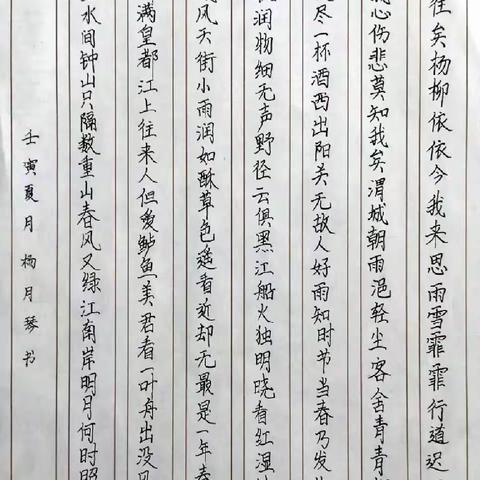 往矣杨柳依依今我来思雨雪霏霏行道迟
心伤悲莫知我矣渭城朝雨浥轻尘客舍青青
尽一杯酒西出阳关无故人好雨知时节当春乃发
润物细无声野径云俱黑江船火独明晓看红湿
风天街小雨润如酥草色遥看近却无最是一年春
满皇都江上往来人但爱鲈鱼美君看一叶舟出没风
水间钟山只隔数重山春风又绿江南岸明月何时照
壬寅夏月杨月琴书